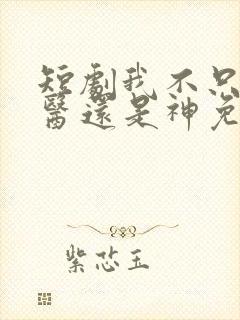 短劇我不只
醫還是神免
紫芯玉